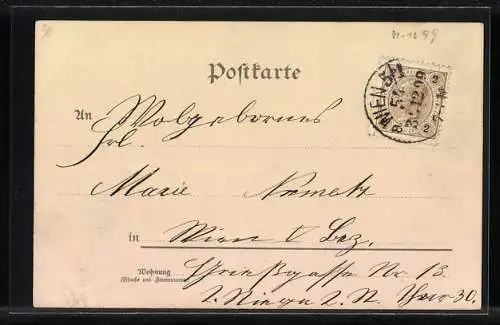 31.12.99
Postkarte
WIEN 5/1
An Wolgebornes
Frl.
Marie Nemetz
in Wien V Bez.
Wohnung
(Straße und Hausnummer)
Grießgasse Nr. 13.
2. Stiege 2. St. Thür 30.